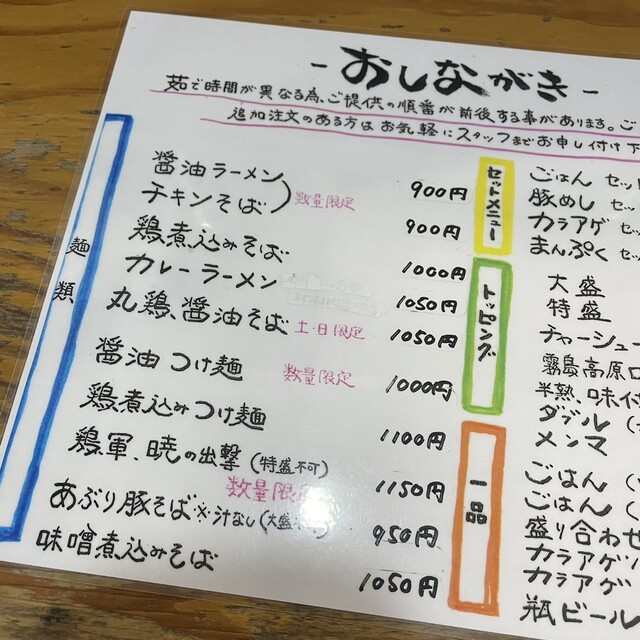 -おしながき-
茹で時間が異なる為、ご提供の順番が前後する事があります。ご
追加注文のある方はお気軽にスタッフまでお申し付け下
麺類
醤油ラーメン 900円
チキンそば 数量限定 900円
鶏煮込みそば 1000円
カレーラーメン 1050円
丸鶏、醤油そば 土・日限定 1050円
醤油つけ麺 数量限定 1000円
鶏煮込みつけ麺 1100円
鶏軍、暁の出撃(特盛不可) 1150円
数量限定
あぶり豚そば※汁なし(大盛 950円
味噌煮込みそば 1050円
セットメニュー
ごはん セッ
豚めし セッ
カラアゲ セッ
まんぷく セッ
トッピング
大盛
特盛
チャーシュー
霧島高原ロ
半熟、味付
ダブル(
メンマ
一品
ごはん(
ごはん(
盛り合わせ
カラアゲ
カラアゲ
瓶ビール